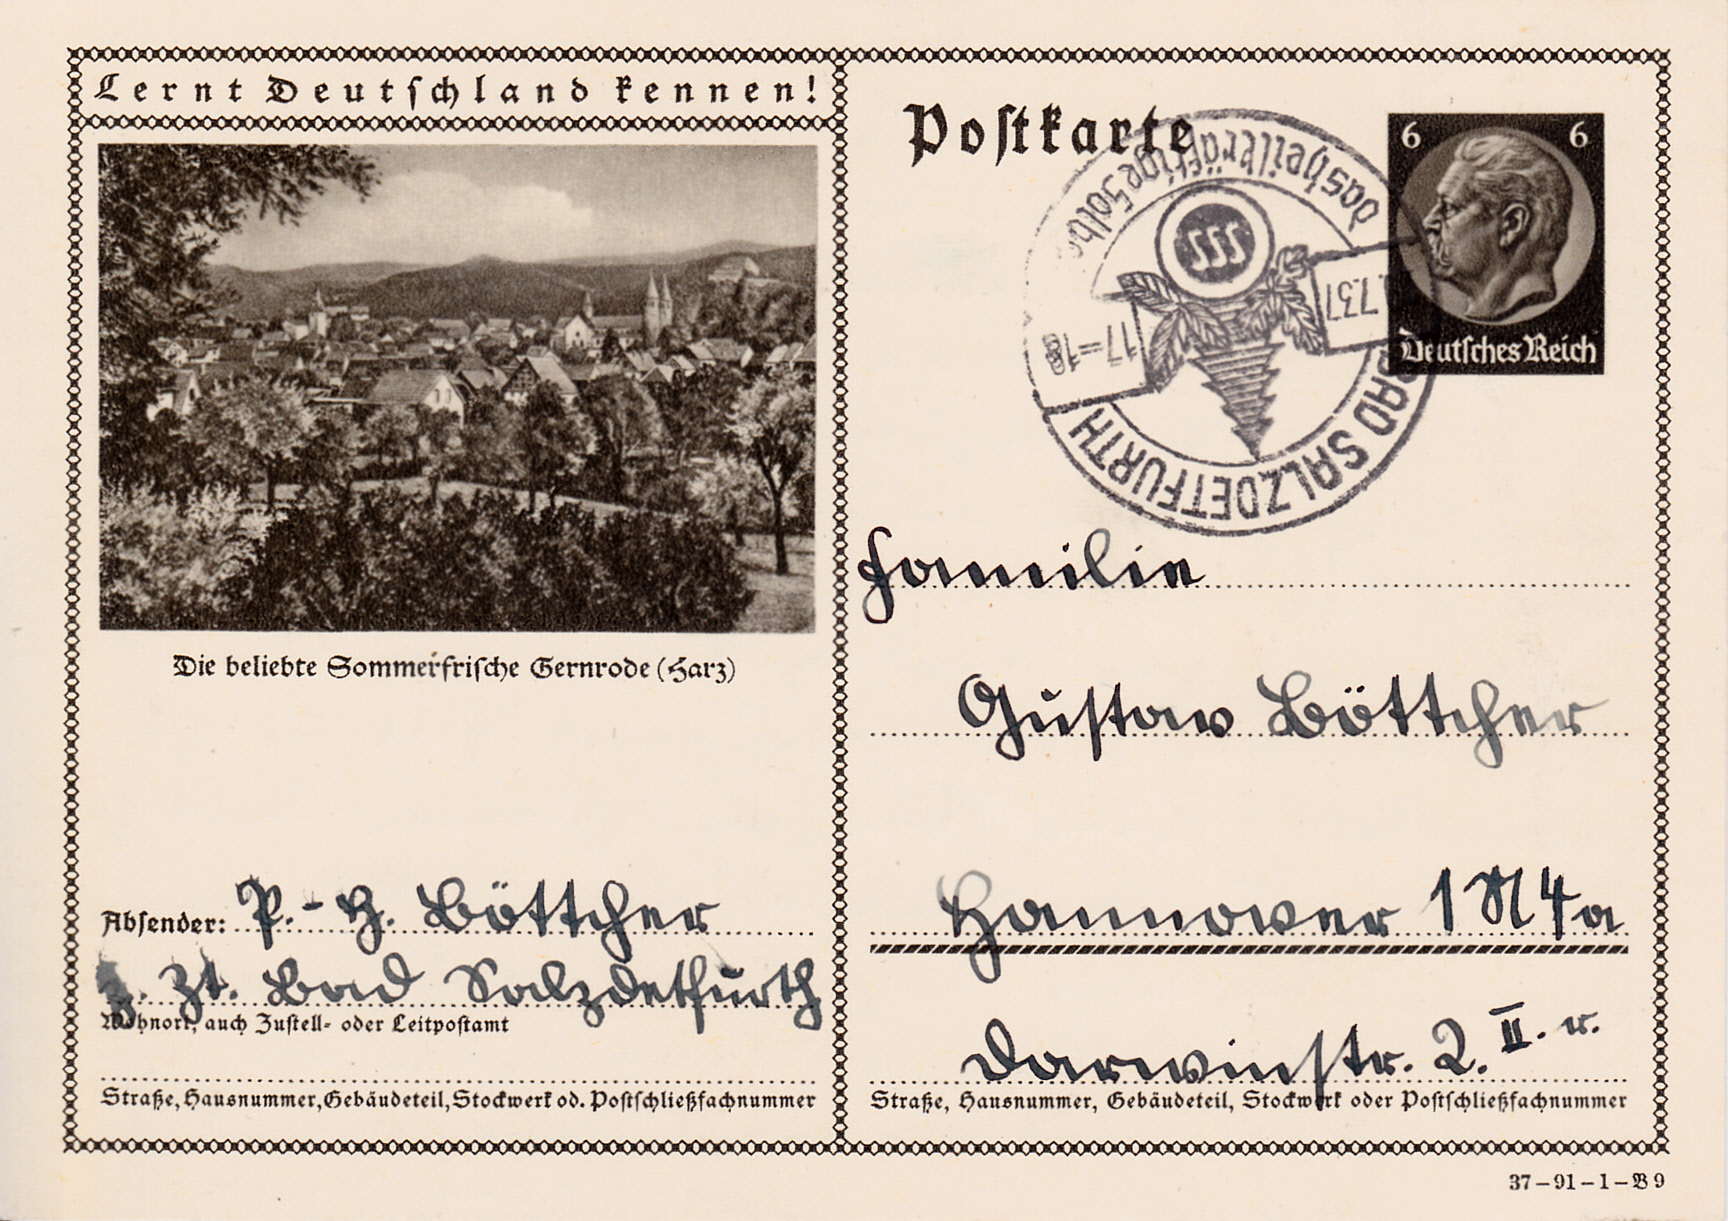 Lernt Deutschland kennen!
Die beliebte Sommerfrische Gernrode (Harz)
Absender: P.-H. Böttcher
z. Zt. Bad Salzdetfurth
Wohnort, auch Zustell- oder Leitpostamt
Straße, Hausnummer, Gebäudeteil, Stockwerk od. Postschließfachnummer
Postkarte
6 6
Deutsches Reich
das heilkräftige Solb
17-18
.7.37
BAD SALZDETFURTH
Familie
Gustav Böttcher
Hannover 1 M 4a
Darwinstr. 2. II. r.
Straße, Hausnummer, Gebäudeteil, Stockwerk oder Postschließfachnummer
37-91-1-B9